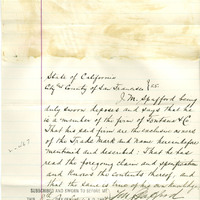 State of California
City & County of San Francisco } ss.
J. M. Spafford being
duly sworn deposes and says that he
is a member of the firm of & Co.
That his said firm are the exclusive owners
of the Trade Mark and name hereinbefore
mentioned and described: That he has
read the foregoing claim and specification
and knows the contents thereof, and
that the same is true of his own knowledge
SUBSCRIBED AND SWORN TO BEFORE ME